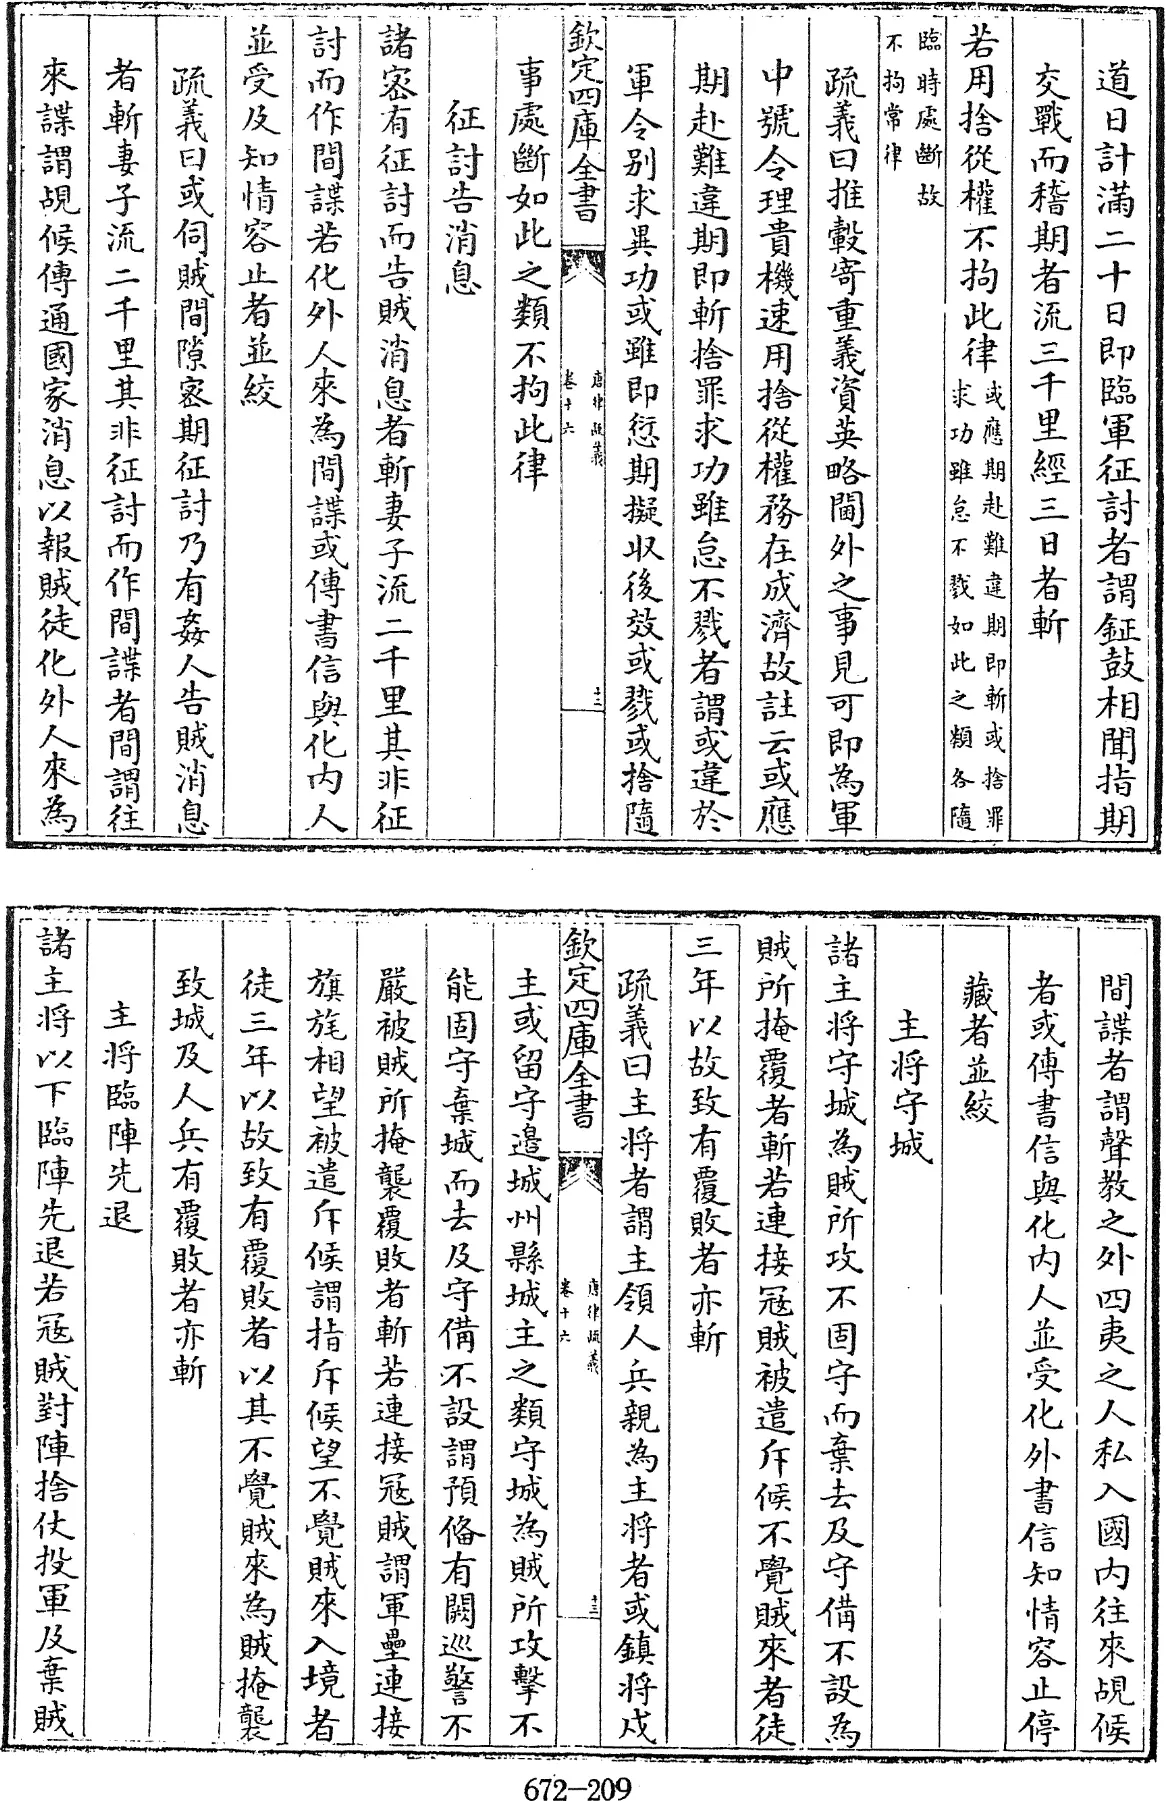 道日計滿二十日即臨軍征討者謂鉦鼓相聞指期
交戰而稽期者流三千里經三日者斬
若用捨從權不拘此律或應期赴難違期即斬或捨罪
求功雖怠不戮如此之類各隨
臨時處斷故
不拘常律
疏義曰推轂寄重義資英略閫外之事見可即為軍
中號令理貴機速用捨從權務在成濟故註云或應
期赴難違期即斬捨罪求功雖怠不戮者謂或違於
軍令別求異功或雖即愆期擬収後效或戮或捨隨
欽定四庫全書
唐律疏義
卷十六
十三
事處斷如此之類不拘此律
征討告消息
諸宻有征討而告賊消息者斬妻子流二千里其非征
討而作間諜若化外人來為間諜或傳書信與化内人
並受及知情容止者並絞
疏義曰或伺賊間隙宻期征討乃有姦人告賊消息
者斬妻子流二千里其非征討而作間諜者間謂往
來諜謂覘候傳通國家消息以報賊徒化外人來為
間諜者謂聲教之外四夷之人私入國内往來覘候
者或傳書信與化内人並受化外書信知情容止停
藏者並絞
主將守城
諸主將守城為賊所攻不固守而棄去及守備不設為
賊所掩覆者斬若連接冦賊被遣斥候不覺賊來者徒
三年以故致有覆敗者亦斬
疏義曰主將者謂主領人兵親為主將者或鎮將戍
欽定四庫全書
唐律疏義
卷十六
十三
主或留守邊城州縣城主之類守城為賊所攻擊不
能固守棄城而去及守備不設謂預俻有闕巡警不
嚴被賊所掩襲覆敗者斬若連接冦賊謂軍壘連接
旗旄相望被遣斥候謂指斥候望不覺賊來入境者
徒三年以故致有覆敗者以其不覺賊來為賊掩襲
致城及人兵有覆敗者亦斬
主將臨陣先退
諸主將以下臨陣先退若冦賊對陣捨仗投軍及棄賊
672-209